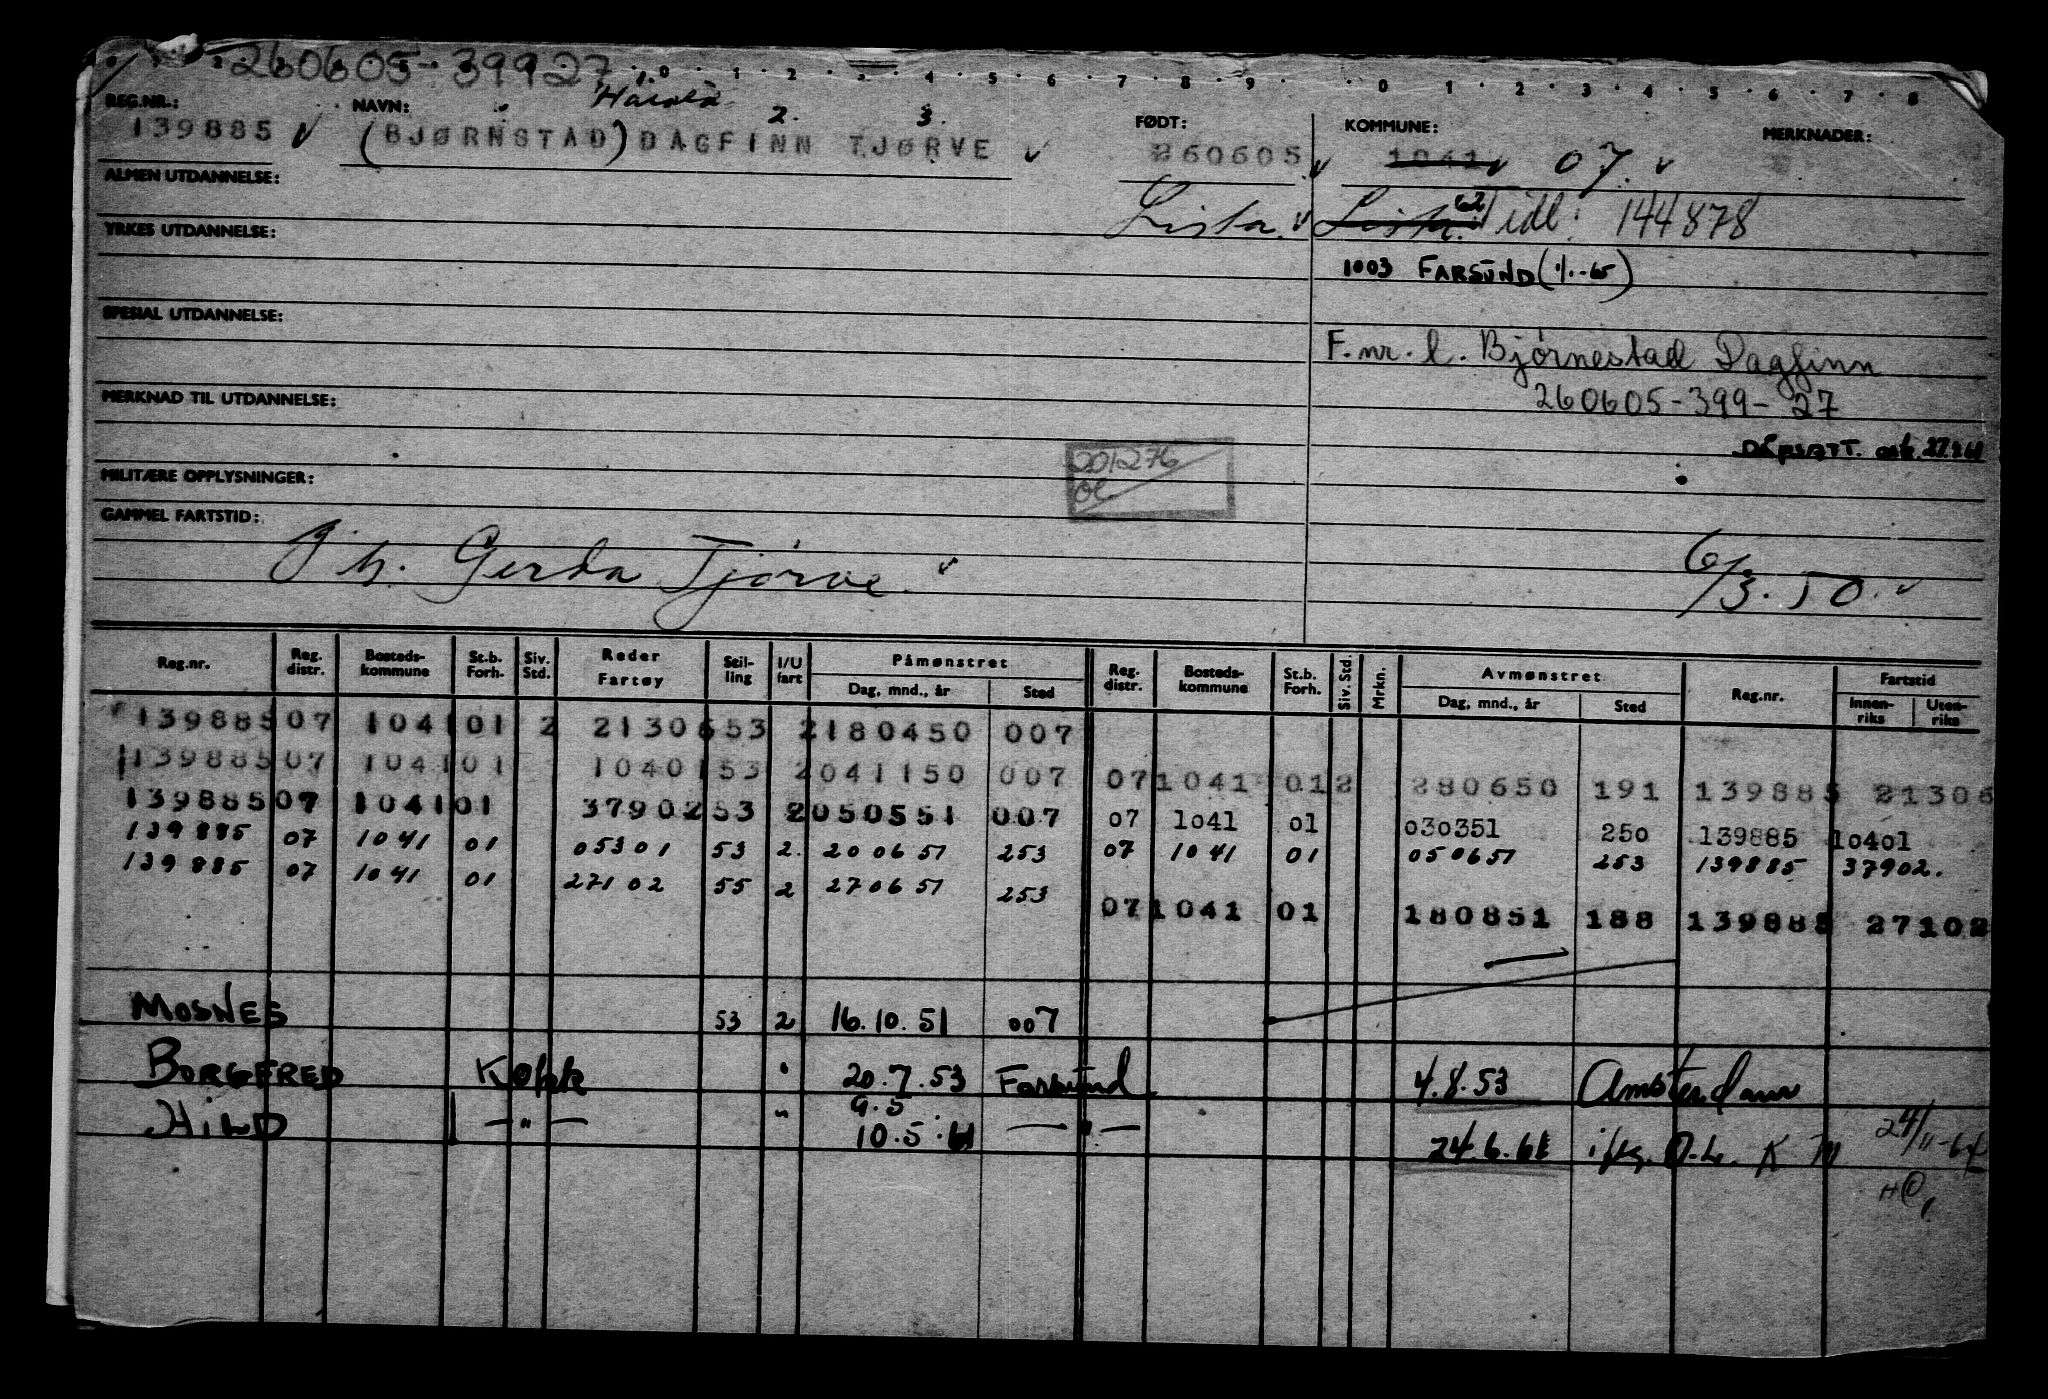 260605-39927
REG.NR.: NAVN: Harald FØDT: KOMMUNE: MERKNADER:
1. 2. 3.
139885 (BJØRNSTAD) DAGFINN TJØRVE 260605 1041 07
ALMEN UTDANNELSE:
Lista Lista 62 Tidl: 144878
YRKES UTDANNELSE:
1003 FARSUND (1/1-65)
SPESIAL UTDANNELSE:
F.nr. l. Bjørnestad Dagfinn
260605-399-27
MERKNAD TIL UTDANNELSE:
DÅPSATT.
201276
MILITÆRE OPPLYSNINGER:
GAMMEL FARTSTID:
Gerda Tjørve 6/3.50
Reg.nr. Reg. distr. Bosteds-kommune St.b. Forh. Siv. Std. Reder Fartøy Stil-ling I/U fart Påmønstret Dag, mnd., år Sted Reg. distr. Bosteds-kommune St.b. Forh. Siv. Std. Mrkn. Avmønstret Dag, mnd., år Sted Reg.nr. Fartstid Innen-riks Uten-riks
139885 07 1041 01 2 21306 53 2 180450 007
139885 07 1041 01 10401 53 2 041150 007 07 1041 01 2 280650 191 139885 21306
139885 07 1041 01 37902 53 2 050551 007 07 1041 01 030351 250 139885 10401
139885 07 1041 01 05301 53 2. 200651 253 07 1041 01 050651 253 139885 37902.
139885 07 1041 01 27102 55 2 270651 253
07 1041 01 180851 188 139885 27102
MOSNES 53 2 16.10.51 007
BORGFRED Kokk " 20.7.53 Farsund 4.8.53 Amsterdam
9.5
HILD -"- " 10.5.61 -"- 24.6.61